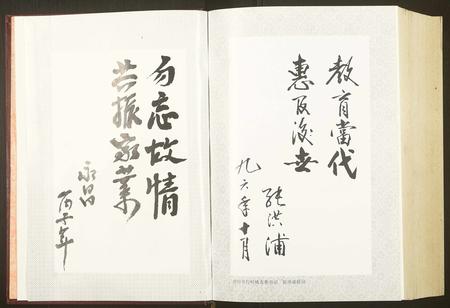 教育當代
惠及後世
張洪浦
九六年十月
勿忘故情
共振家業
永昌
丙子年